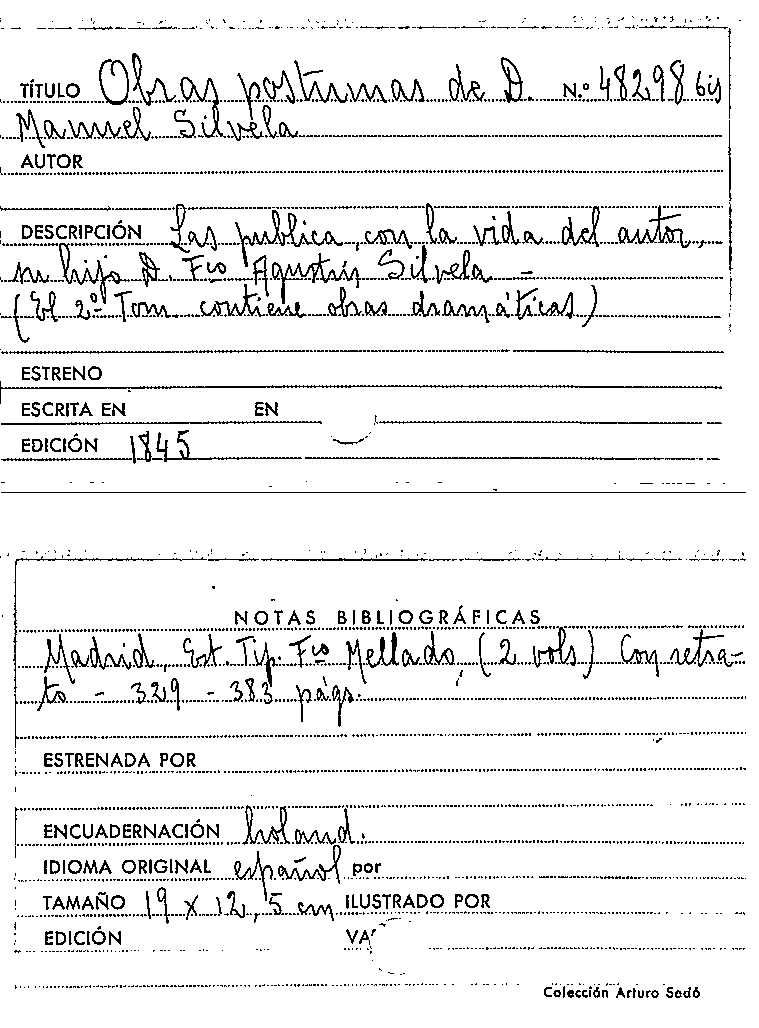 TÍTULO Obras postumas de D. N.º 48298 bis
Manuel Silvela
AUTOR
DESCRIPCIÓN Las publica, con la vida del autor,
su hijo D. Fco Agustín Silvela -
(El 2º Tom. contiene obras dramáticas)
ESTRENO
ESCRITA EN EN
EDICIÓN 1845
NOTAS BIBLIOGRÁFICAS
Madrid, Est. Tip. Fco Mellado, (2 vols) Con retra-
to - 329 - 383 págs.
ESTRENADA POR
ENCUADERNACIÓN holand.
IDIOMA ORIGINAL español por
TAMAÑO 19 x 12,5 cm ILUSTRADO POR
EDICIÓN
Colección Arturo Sedó